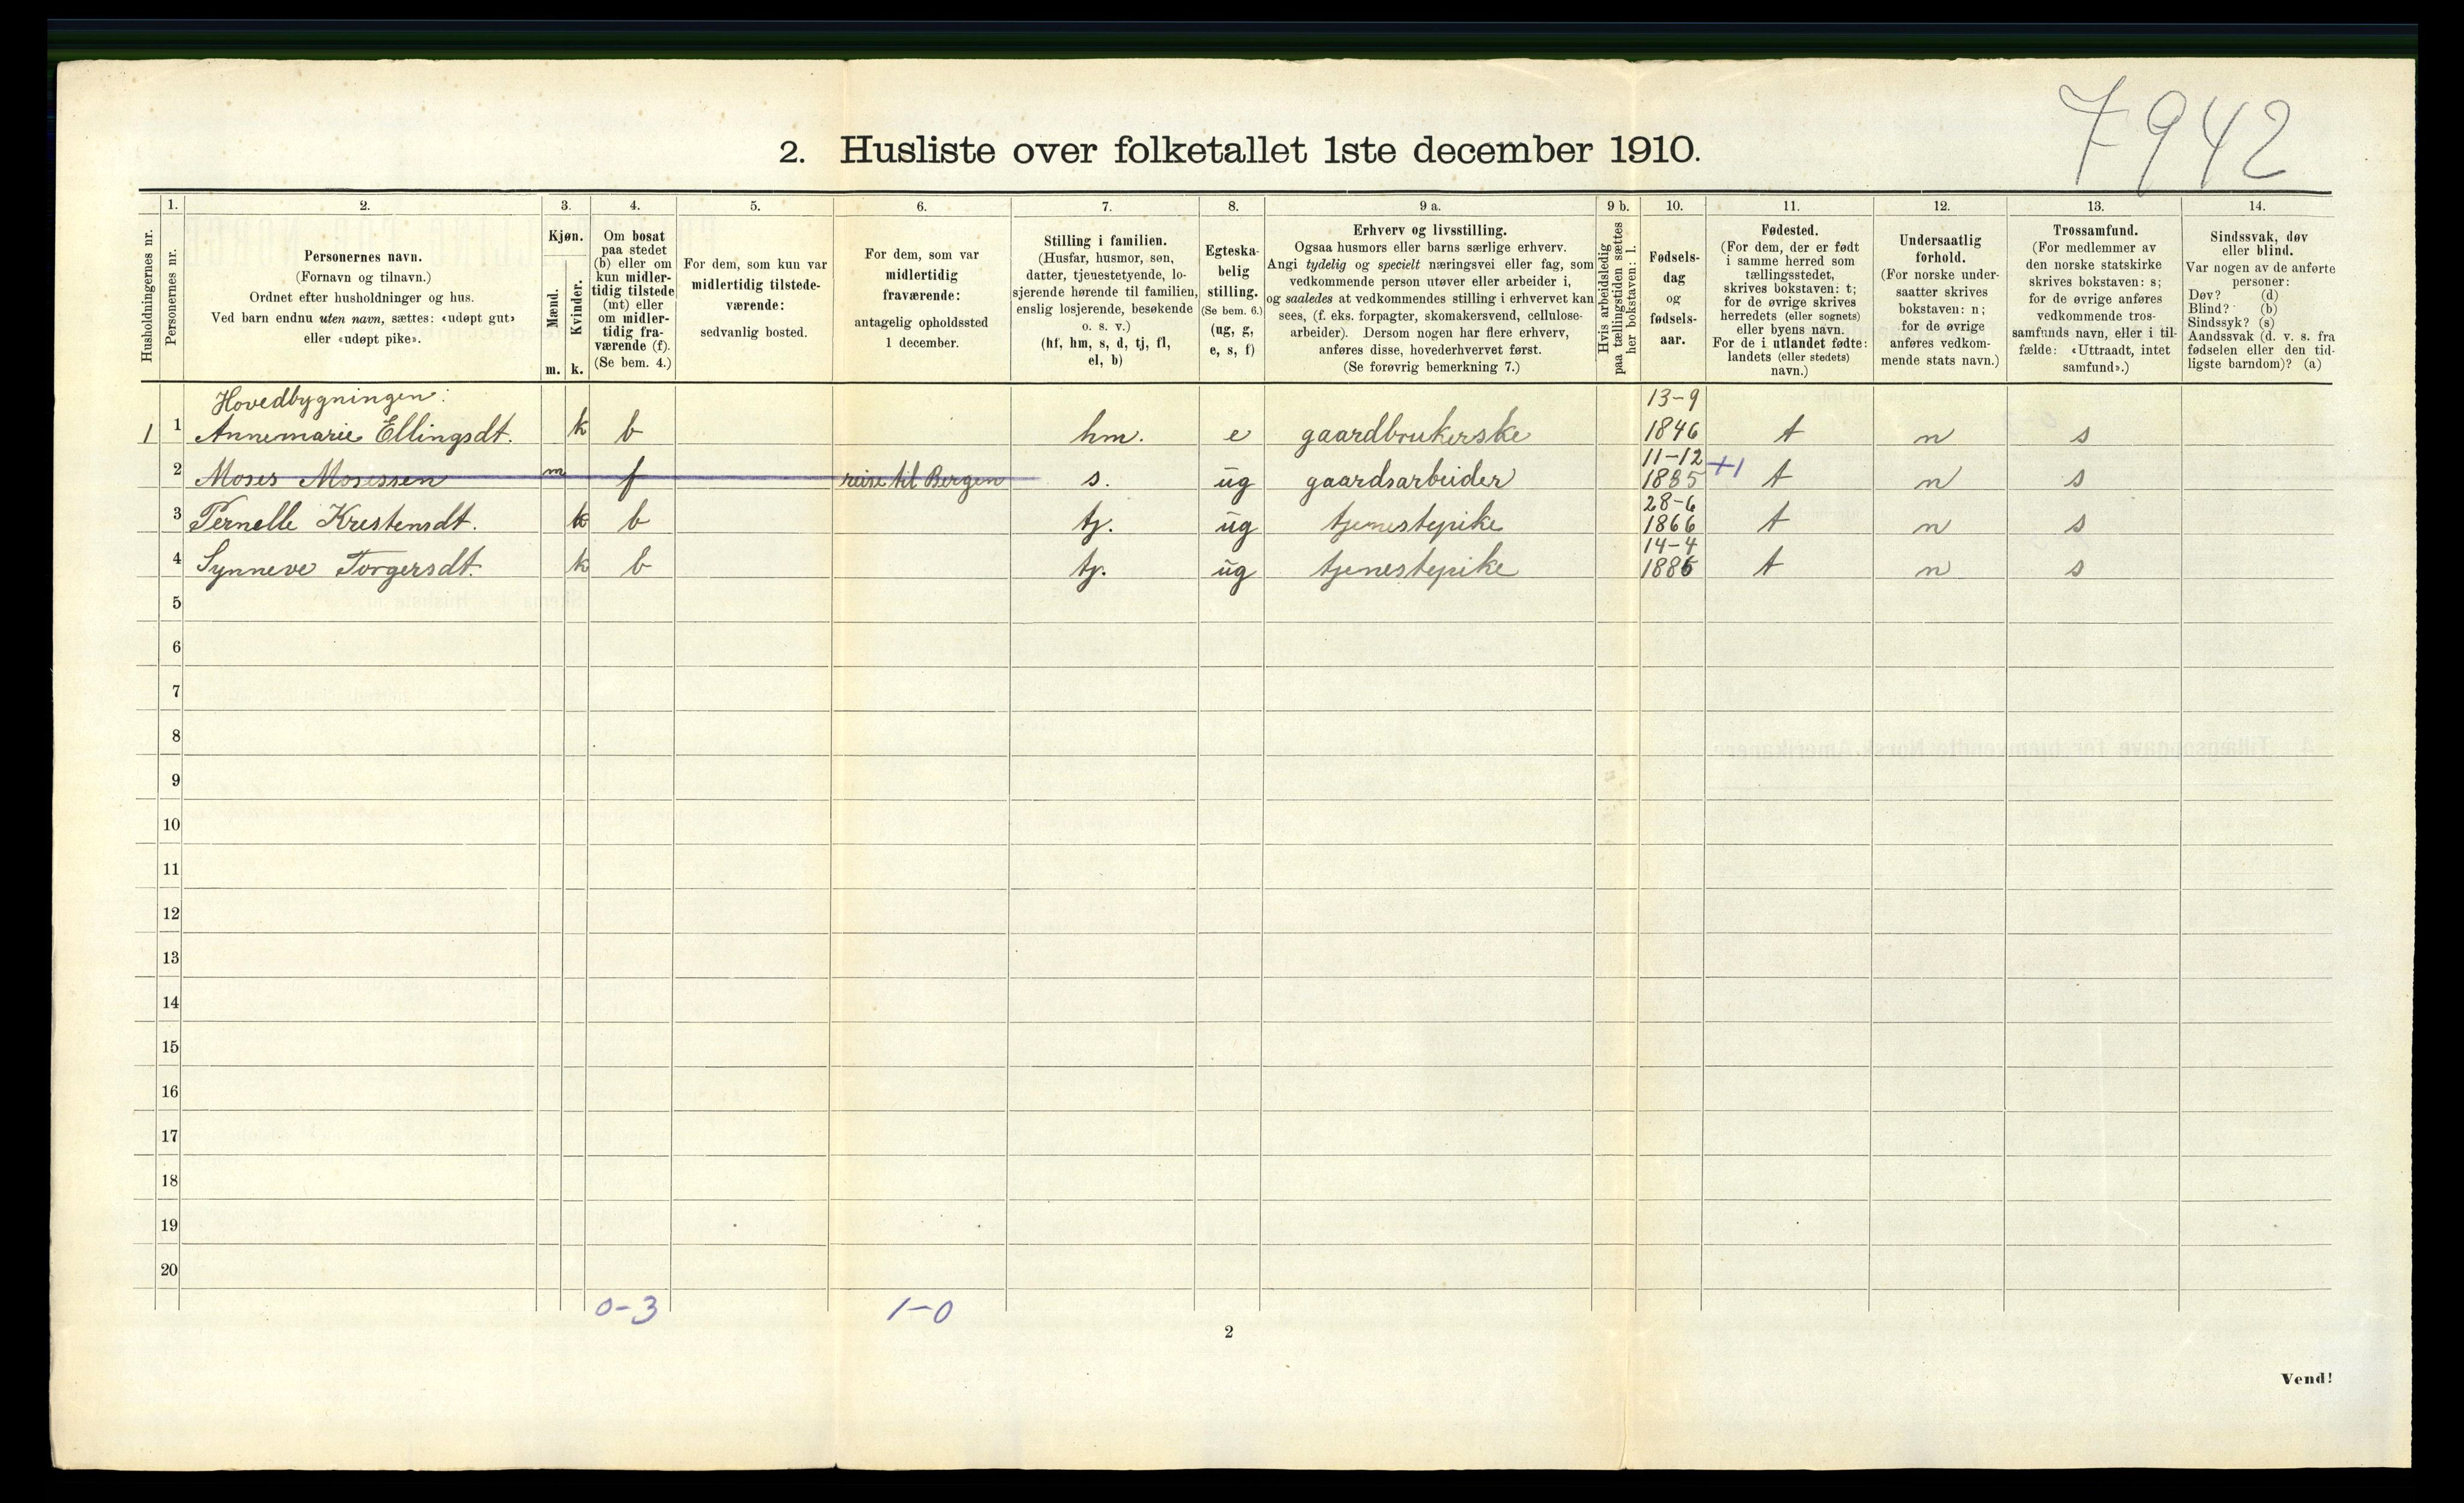 7942
2. Husliste over folketallet 1ste december 1910.
Husholdningernes nr.
1.
Personernes nr.
2.
Personernes navn.
(Fornavn og tilnavn.)
Ordnet efter husholdninger og hus.
Ved barn endnu uten navn, sættes: «udøpt gut»
eller «udøpt pike».
3.
Kjøn.
Mænd.
Kvinder.
m. k.
4.
Om bosat
paa stedet
(b) eller om
kun midler-
tidig tilstede
(mt) eller
om midler-
tidig fra-
værende (f).
(Se bem. 4.)
5.
For dem, som kun var
midlertidig tilstede-
værende:
sedvanlig bosted.
6.
For dem, som var
midlertidig
fraværende:
antagelig opholdssted
1 december.
7.
Stilling i familien.
(Husfar, husmor, søn,
datter, tjenestetyende, lo-
sjerende hørende til familien,
enslig losjerende, besøkende
o. s. v.)
(hf, hm, s, d, tj, fl,
el, b)
8.
Egteska-
belig
stilling.
(Se bem. 6.)
(ug, g,
e, s, f)
9 a.
Erhverv og livsstilling.
Ogsaa husmors eller barns særlige erhverv.
Angi tydelig og specielt næringsvei eller fag, som
vedkommende person utøver eller arbeider i,
og saaledes at vedkommendes stilling i erhvervet kan
sees, (f. eks. forpagter, skomakersvend, cellulose-
arbeider). Dersom nogen har flere erhverv,
anføres disse, hovederhvervet først.
(Se forøvrig bemerkning 7.)
9 b.
Hvis arbeidsledig
paa tællingstiden sættes
her bokstaven: l.
10.
Fødsels-
dag
og
fødsels-
aar.
11.
Fødested.
(For dem, der er født
i samme herred som
tællingsstedet,
skrives bokstaven: t;
for de øvrige skrives
herredets (eller sognets)
eller byens navn.
For de i utlandet fødte:
landets (eller stedets)
navn.)
12.
Undersaatlig
forhold.
(For norske under-
saatter skrives
bokstaven: n;
for de øvrige
anføres vedkom-
mende stats navn.)
13.
Trossamfund.
(For medlemmer av
den norske statskirke
skrives bokstaven: s;
for de øvrige anføres
vedkommende tros-
samfunds navn, eller i til-
fælde: «Uttraadt, intet
samfund».)
14.
Sindssvak, døv
eller blind.
Var nogen av de anførte
personer:
Døv? (d)
Blind? (b)
Sindssyk? (s)
Aandssvak (d. v. s. fra
fødselen eller den tid-
ligste barndom)? (a)
Hovedbygningen: 13-9
1 1 Annemarie Ellingsdt. k b hm. e gaardbrukerske 1846 t n s
11-12 +1
2 Moses Mosessen m f reise til Bergen s. ug gaardsarbeider 1885 t n s
28-6
3 Pernelle Kristensdt. k b tj. ug tjenestepike 1866 t n s
14-4
4 Synneve Torgersdt. k b tj. ug tjenestepike 1886 t n s
5
6
7
8
9
10
11
12
13
14
15
16
17
18
19
20
0-3 1-0
2
Vend!